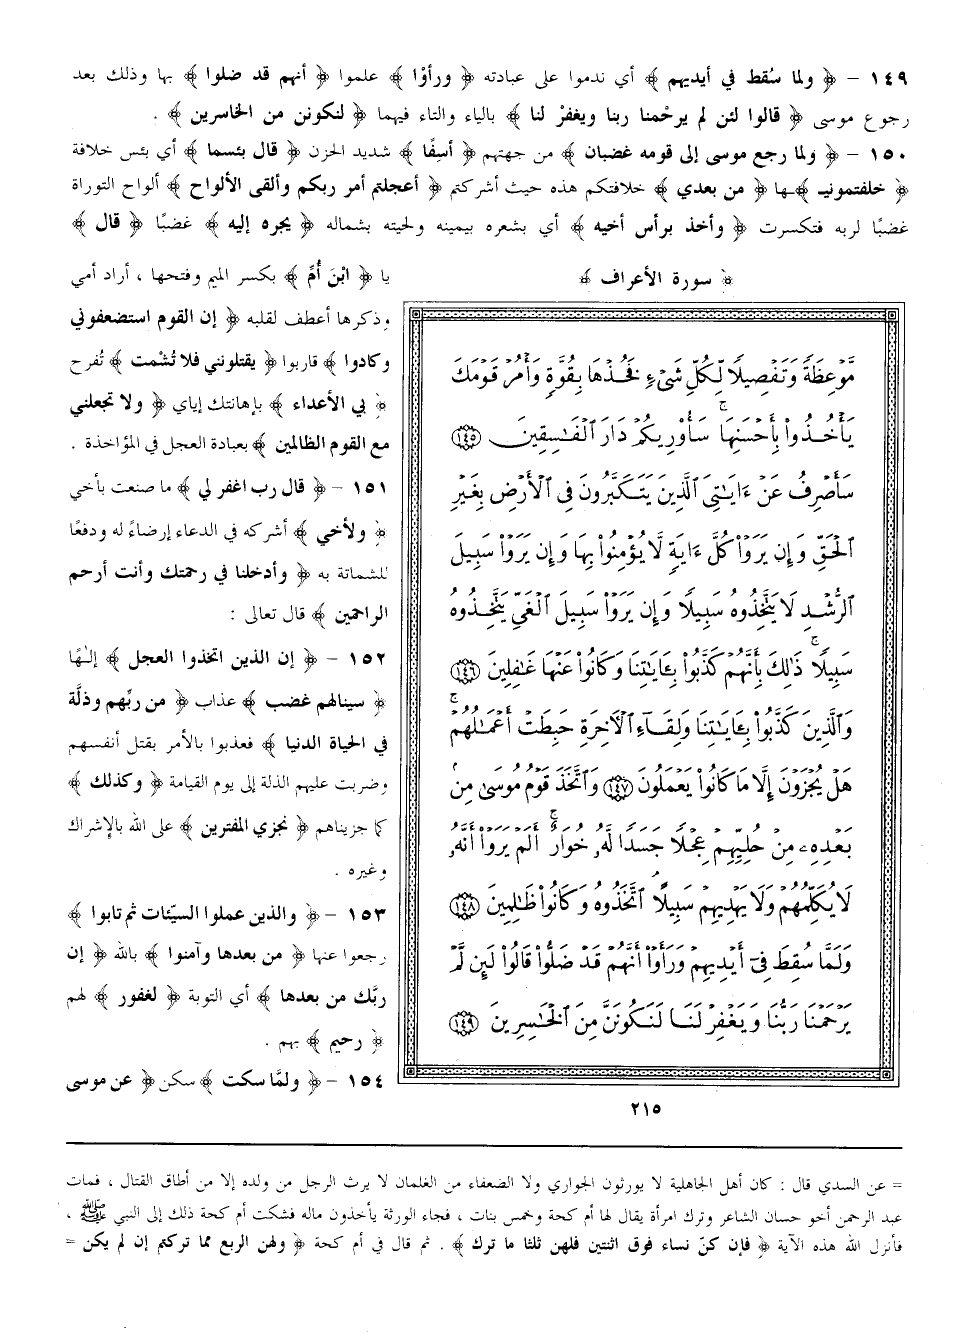 ١٤٩ - ﴿ ولما سُقط في أيديهم ﴾ أي ندموا على عبادته ﴿ ورأوْا ﴾ علموا ﴿ أنهم قد ضلوا ﴾ بها وذلك بعد
رجوع موسى ﴿ قالوا لئن لم يرحْمنا ربنا ويغفرْ لنا ﴾ بالياء والتاء فيهما ﴿ لنكونن من الخاسرين ﴾ .
١٥٠ - ﴿ ولما رجع موسى إلى قومه غضبان ﴾ من جهتهم ﴿ أسِفًا ﴾ شديد الحزن ﴿ قال بئسما ﴾ أي بئس خلافة
﴿ خلفتمونيـ ﴾ـها ﴿ من بعدي ﴾ خلافتكم هذه حيث أشركتم ﴿ أعجلتم أمر ربكم وألقى الألواح ﴾ ألواح التوراة
غضبًا لربه فتكسرت ﴿ وأخذ برأس أخيه ﴾ أي بشعره بيمينه ولحيته بشماله ﴿ يجره إليه ﴾ غضبًا ﴿ قال ﴾
﴿ سورة الأعراف ﴾
مَّوْعِظَةً وَتَفْصِيلًا لِّكُلِّ شَىْءٍ فَخُذْهَا بِقُوَّةٍ وَأْمُرْ قَوْمَكَ
يَأْخُذُوا۟ بِأَحْسَنِهَا ۚ سَأُو۟رِيكُمْ دَارَ ٱلْفَـٰسِقِينَ ١٤٥
سَأَصْرِفُ عَنْ ءَايَـٰتِىَ ٱلَّذِينَ يَتَكَبَّرُونَ فِى ٱلْأَرْضِ بِغَيْرِ
ٱلْحَقِّ وَإِن يَرَوْا۟ كُلَّ ءَايَةٍ لَّا يُؤْمِنُوا۟ بِهَا وَإِن يَرَوْا۟ سَبِيلَ
ٱلرُّشْدِ لَا يَتَّخِذُوهُ سَبِيلًا وَإِن يَرَوْا۟ سَبِيلَ ٱلْغَىِّ يَتَّخِذُوهُ
سَبِيلًا ۚ ذَٰلِكَ بِأَنَّهُمْ كَذَّبُوا۟ بِـَٔايَـٰتِنَا وَكَانُوا۟ عَنْهَا غَـٰفِلِينَ ١٤٦
وَٱلَّذِينَ كَذَّبُوا۟ بِـَٔايَـٰتِنَا وَلِقَآءِ ٱلْـَٔاخِرَةِ حَبِطَتْ أَعْمَـٰلُهُمْ ۚ
هَلْ يُجْزَوْنَ إِلَّا مَا كَانُوا۟ يَعْمَلُونَ ١٤٧ وَٱتَّخَذَ قَوْمُ مُوسَىٰ مِنۢ
بَعْدِهِۦ مِنْ حُلِيِّهِمْ عِجْلًا جَسَدًا لَّهُۥ خُوَارٌ ۚ أَلَمْ يَرَوْا۟ أَنَّهُۥ
لَا يُكَلِّمُهُمْ وَلَا يَهْدِيهِمْ سَبِيلًا ۘ ٱتَّخَذُوهُ وَكَانُوا۟ ظَـٰلِمِينَ ١٤٨
وَلَمَّا سُقِطَ فِىٓ أَيْدِيهِمْ وَرَأَوْا۟ أَنَّهُمْ قَدْ ضَلُّوا۟ قَالُوا۟ لَئِن لَّمْ
يَرْحَمْنَا رَبُّنَا وَيَغْفِرْ لَنَا لَنَكُونَنَّ مِنَ ٱلْخَـٰسِرِينَ ١٤٩
٢١٥
يا ﴿ ابْنَ أُمِّ ﴾ بكسر الميم وفتحها ، أراد أمي
وذكرها أعطف لقلبه ﴿ إن القوم استضعفوني
وكادوا ﴾ قاربوا ﴿ يقتلونني فلا تُشْمت ﴾ تُفرح
﴿ بي الأعداء ﴾ بإهانتك إياي ﴿ ولا تجعلني
مع القوم الظالمين ﴾ بعبادة العجل في المؤاخذة .
١٥١ - ﴿ قال رب اغفر لي ﴾ ما صنعت بأخي
﴿ ولأخي ﴾ أشركه في الدعاء إرضاءً له ودفعًا
للشماتة به ﴿ وأدخلنا في رحمتك وأنت أرحم
الراحمين ﴾ قال تعالى :
١٥٢ - ﴿ إن الذين اتخذوا العجل ﴾ إلـٰهًا
﴿ سينالهم غضب ﴾ عذاب ﴿ من ربِّهم وذلَّة
في الحياة الدنيا ﴾ فعذبوا بالأمر بقتل أنفسهم
وضربت عليهم الذلة إلى يوم القيامة ﴿ وكذلك ﴾
كما جزيناهم ﴿ نجزي المفترين ﴾ على الله بالإشراك
وغيره .
١٥٣ - ﴿ والذين عملوا السيِّئات ثم تابوا ﴾
رجعوا عنها ﴿ من بعدها وآمنوا ﴾ بالله ﴿ إن
ربَّك من بعدها ﴾ أي التوبة ﴿ لغفور ﴾ لهم
﴿ رحيم ﴾ بهم .
١٥٤ - ﴿ ولمَّا سكت ﴾ سكن ﴿ عن موسى
= عن السدي قال : كان أهل الجاهلية لا يورثون الجواري ولا الضعفاء من الغلمان لا يرث الرجل من ولده إلا من أطاق القتال ، فمات
عبد الرحمن أخو حسان الشاعر وترك امرأة يقال لها أم كحة وخمس بنات ، فجاء الورثة يأخذون ماله فشكت أم كحة ذلك إلى النبي ﷺ ،
فأنزل الله هذه الآية ﴿ فإن كنّ نساء فوق اثنتين فلهن ثلثا ما ترك ﴾ . ثم قال في أم كحة ﴿ ولهن الربع مما تركتم إن لم يكن =